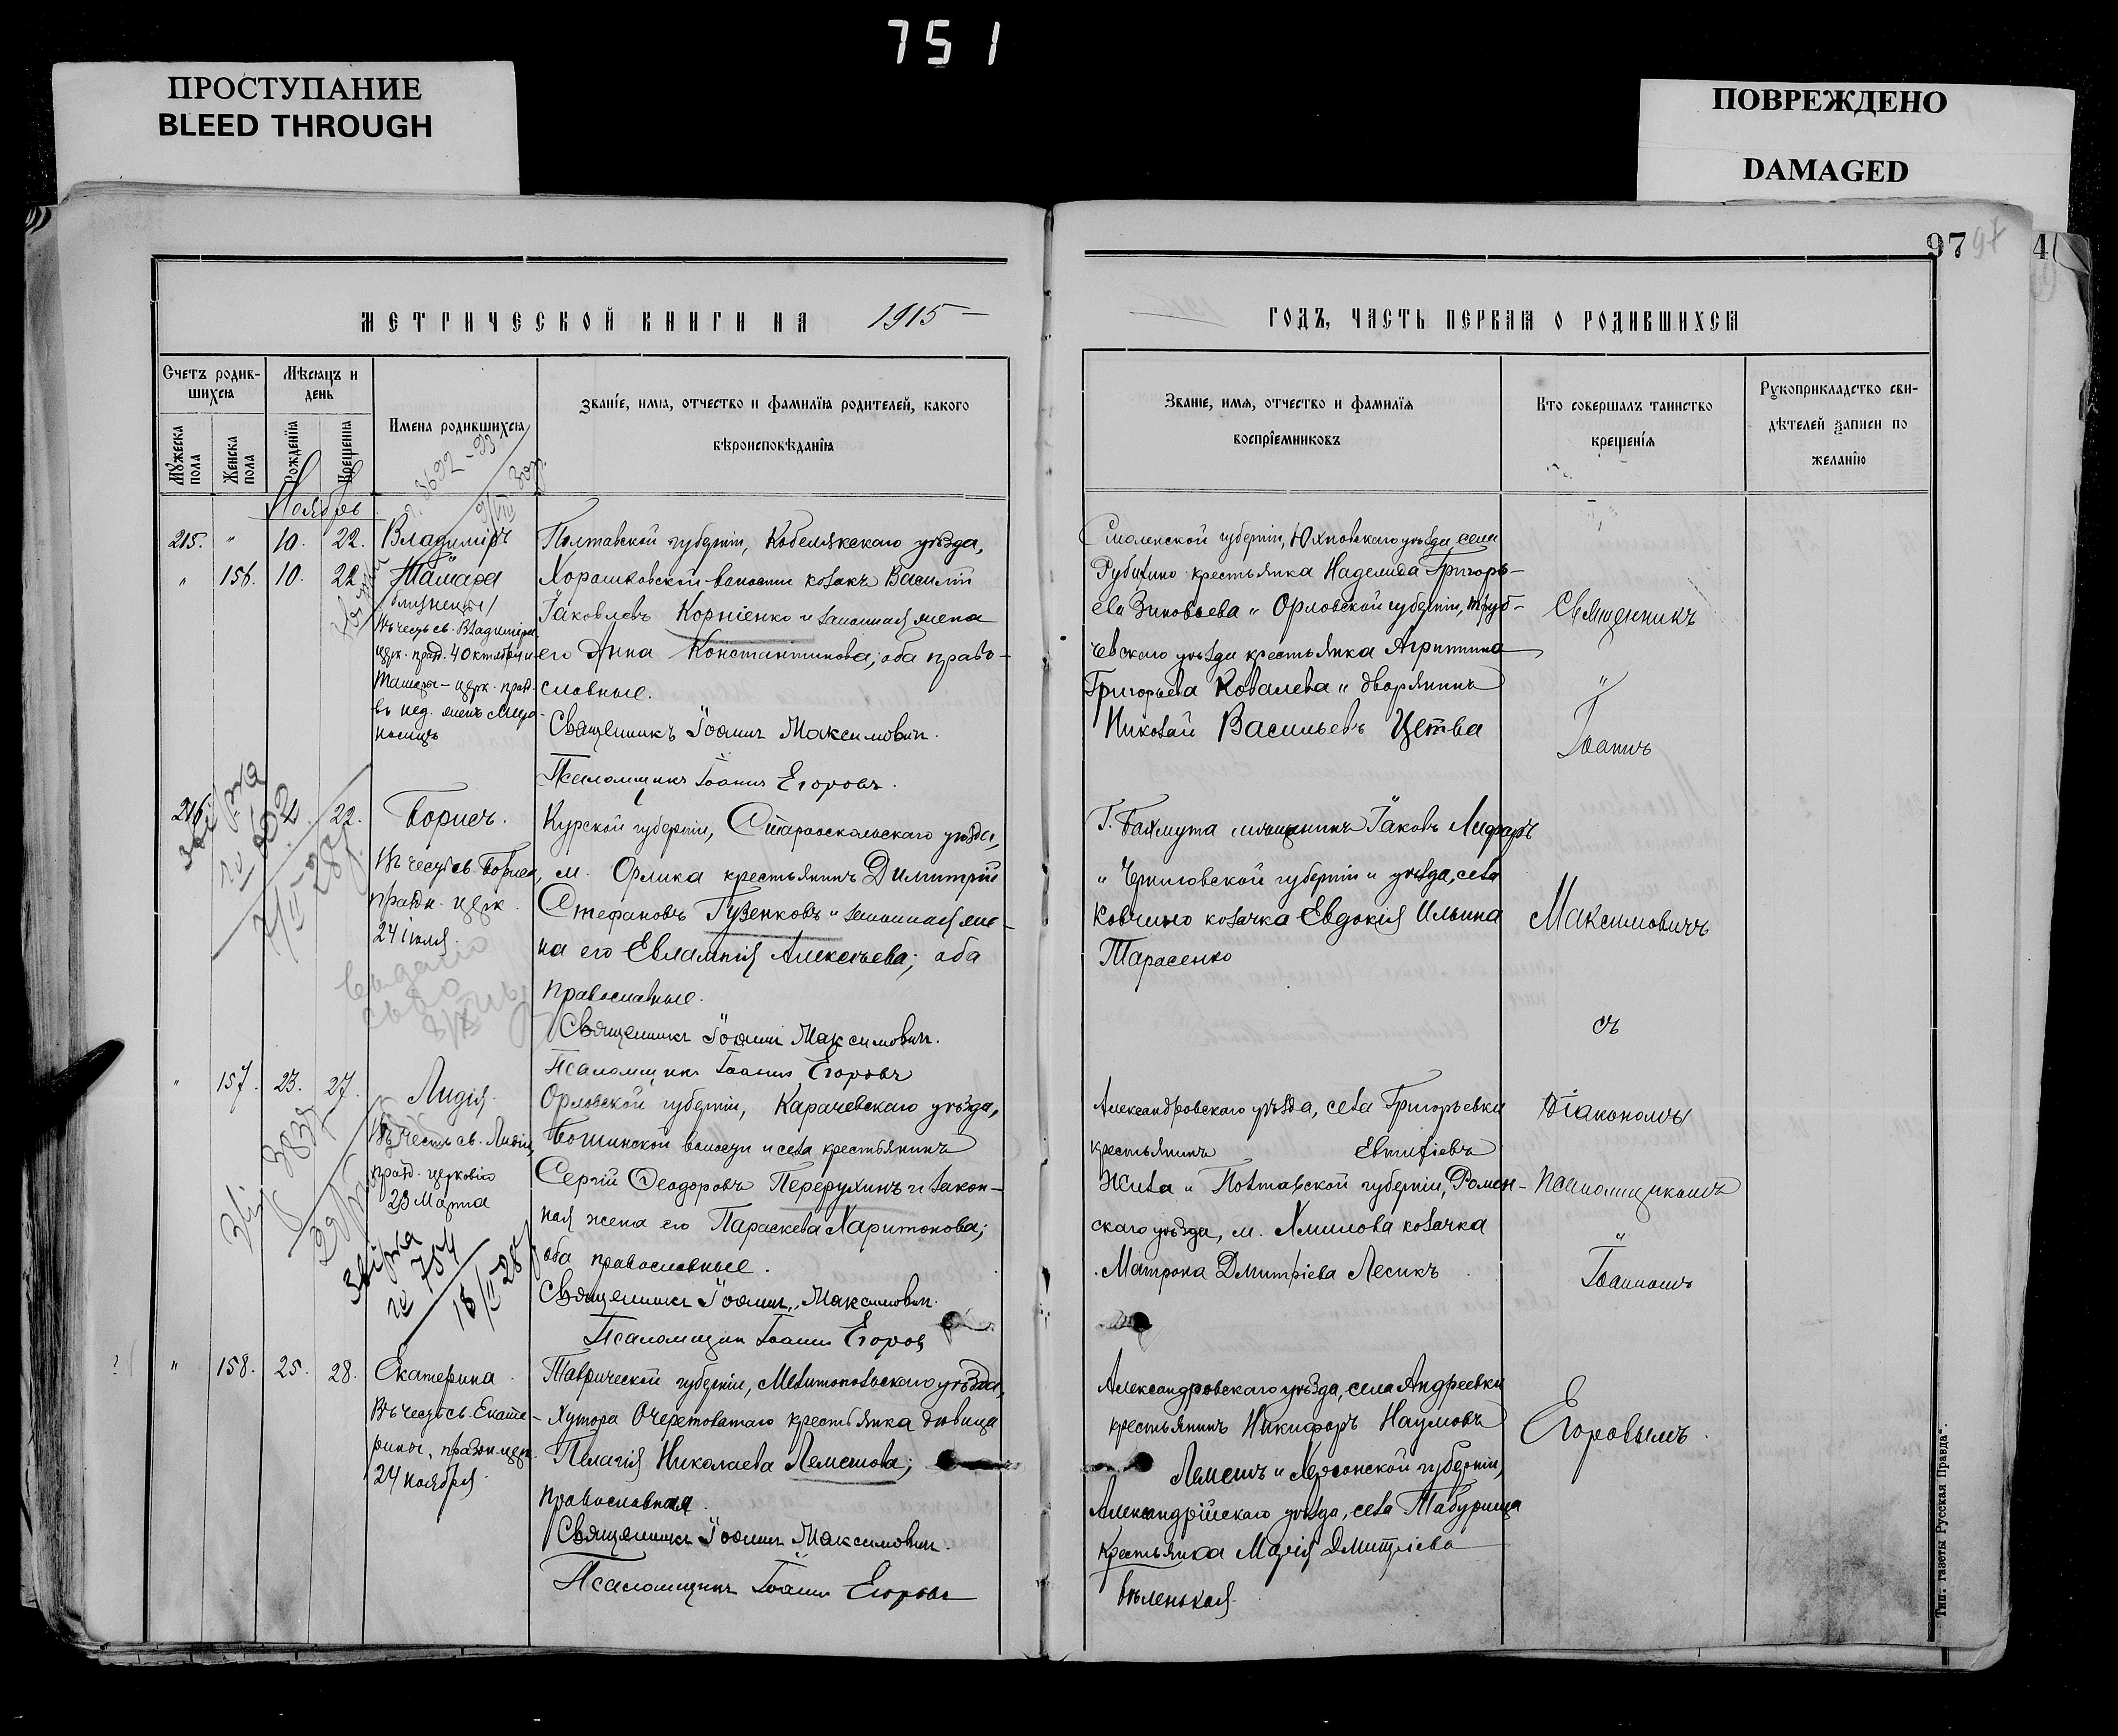 751
ПРОСТУПАНИЕ
BLEED THROUGH
ПОВРЕЖДЕНО
DAMAGED
97 97
4
МЕТРИЧЕСКОЙ КНИГИ НА 1915
Счетъ родившихся
Мѣсяцъ и день
Имена родившихся
Званіе, имя, отчество и фамилія родителей, какого вѣроисповѣданія
Мужеска пола
Женска пола
Рожденія
Крещенія
Ноябрь
215. " 10. 22. Владиміръ
" 156. 10. 22. Тамара
близнецы
Въ честь св. Владиміра
церк. празд. 4 Октября и
Тамары – церк. празд.
въ нед. женъ Мѵро-
носицъ
Полтавской губерніи, Кобелякскаго уѣзда,
Хорошковской волости козакъ Василій
Іаковлевъ Корніенко и законная жена
его Анна Константинова; оба право-
славные.
Священникъ Іоаннъ Максимович.
Псаломщикъ Іоаннъ Егоровъ.
216. 22. Борисъ.
Въ честь св. Бориса,
празд. церк.
24 Іюля.
Курской губерніи, Старооскольскаго уѣзда,
м. Орлика крестьянинъ Димитрій
Стефановъ Гузенковъ и законная же-
на его Евлампія Алексѣева; оба
православные.
Священникъ Іоаннъ Максимович.
Псаломщикъ Іоаннъ Егоровъ
" 157. 23. 27. Лидія.
Въ честь св. Лидіи,
празд. церковію
23 Марта
Орловской губерніи, Карачевскаго уѣзда,
Бошинской волости и села крестьянинъ
Сергій Ѳеодоровъ Перерухинъ и закон-
ная жена его Параскева Харитонова;
оба православные.
Священникъ Іоаннъ Максимович.
Псаломщик Іоаннъ Егоров
" 158. 25. 28. Екатерина.
Въ честь св. Екате-
рины, праздн. цер.
24 ноября.
Таврической губерніи, Мелитопольскаго уѣзда,
хутора Очеретоватаго крестьянка дѣвица
Пелагія Николаева Лемешова;
православная.
Священникъ Іоаннъ Максимович.
Псаломщикъ Іоаннъ Егоровъ
ГОДЪ, ЧАСТЬ ПЕРВАЯ О РОДИВШИХСЯ
Званіе, имя, отчество и фамилія
воспріемниковъ
Кто совершалъ таинство
крещенія
Рукоприкладство сви-
дѣтелей записи по
желанію
Смоленской губерніи, Юхновскаго уѣзда, села
крестьянка Надежда Григорь-
ева Зиновьева и Орловской губерніи, Труб-
чевскаго уѣзда крестьянка Агриппина
Григорьева Ковалева и дворянинъ
Николай Васильевъ Цетва
Г. Бахмута мѣщанинъ Іаковъ Лифарь
и Черниговской губерніи и уѣзда, села
Ковчино козачка Евдокія Ильина
Тарасенко
Александровскаго уѣзда, села Григорьевки
крестьянинъ Евтихіевъ
Жила и Полтавской губерніи, Ромен-
скаго уѣзда, м. Хмилова козачка
Матрона Дмитріева Лесикъ
Александровскаго уѣзда, села Андреевки
крестьянинъ Никифоръ Наумовъ
Лемешъ и Херсонской губерніи,
Александрійскаго уѣзда, села Табурища
крестьянка Марія Дмитріева
Бѣленькая.
Священникъ
Іоаннъ
Максимовичъ
съ
Діакономъ
Псаломщикомъ
Іоанномъ
Егоровымъ.
Тип. газеты Русская Правда".